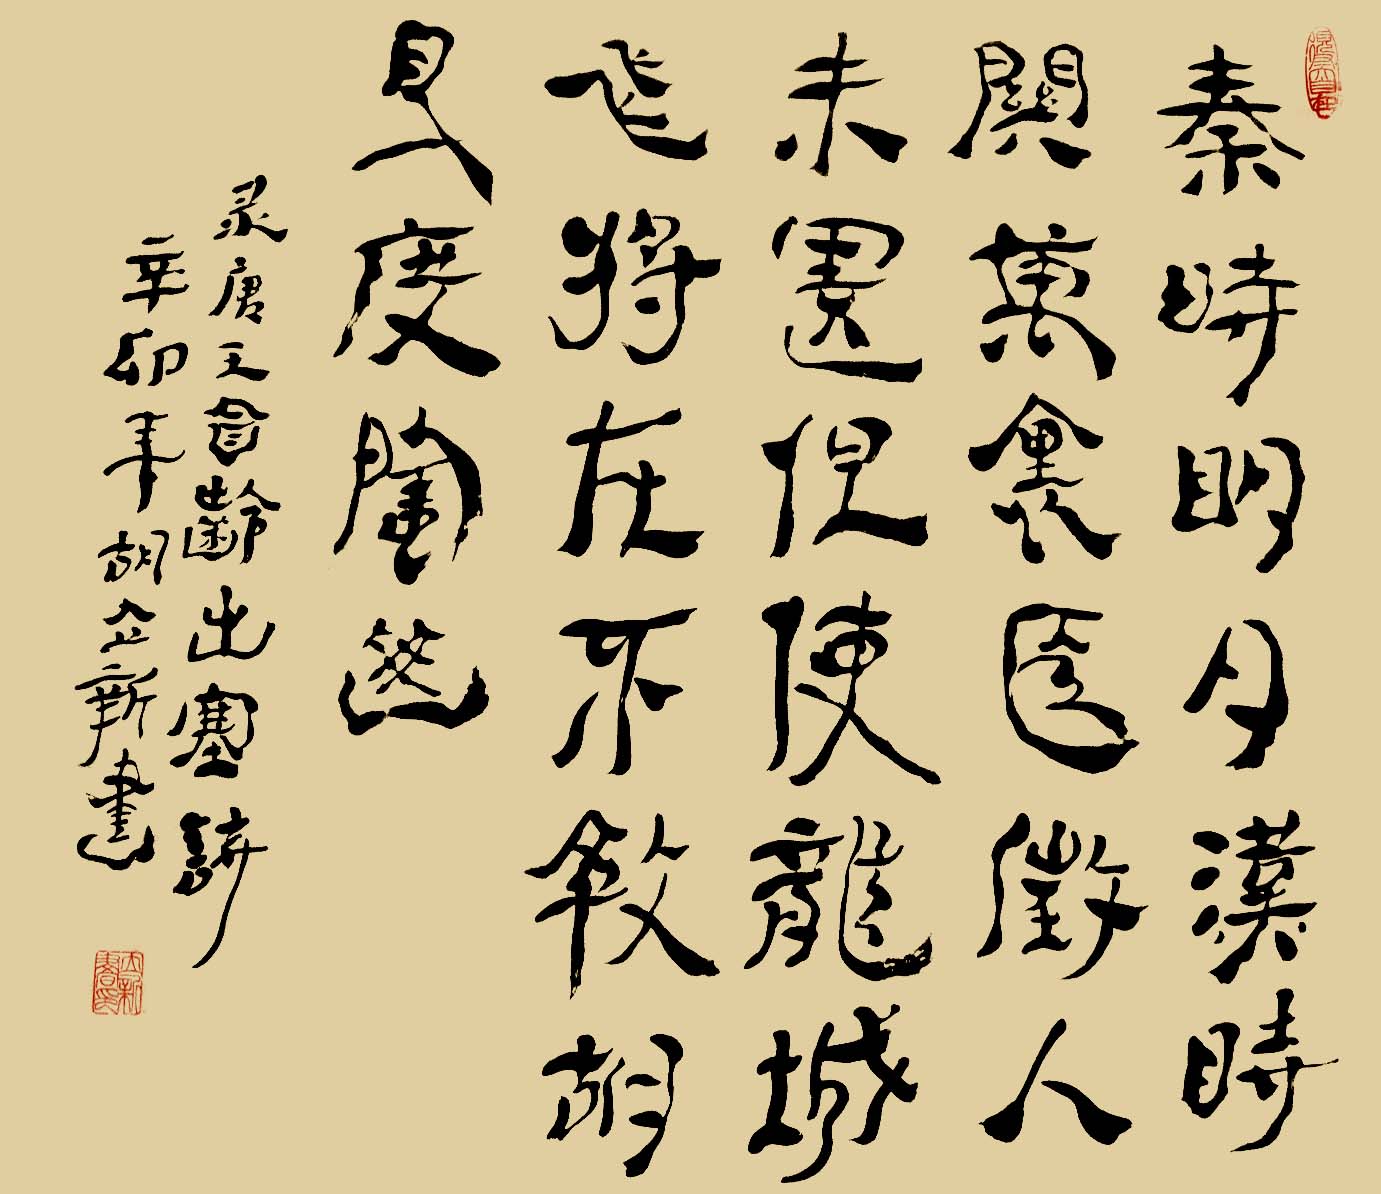 秦時明月漢時
関萬裏長徵人
未還但使龍城
飛將在不教胡
馬度陰山
录唐王昌齡出塞詩
辛卯年胡立新書